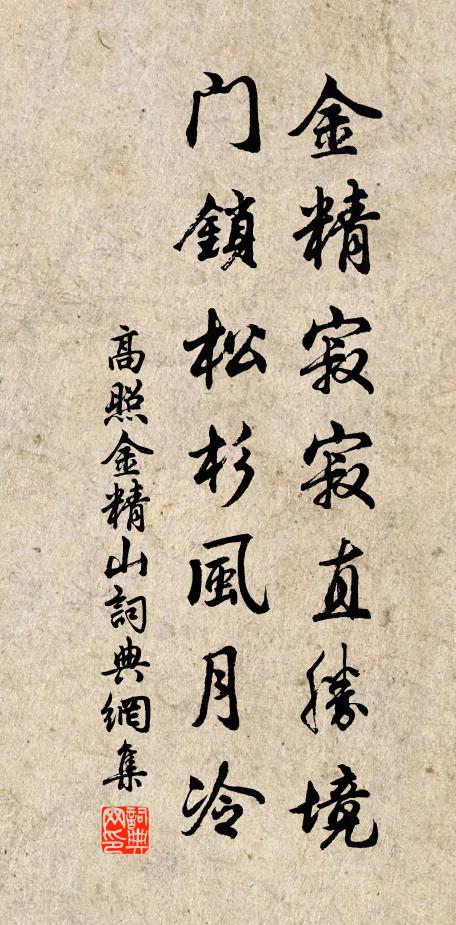 金精寂寂直勝境
门鎖松杉風月冷
高照金精山詞典網集
詞典網印